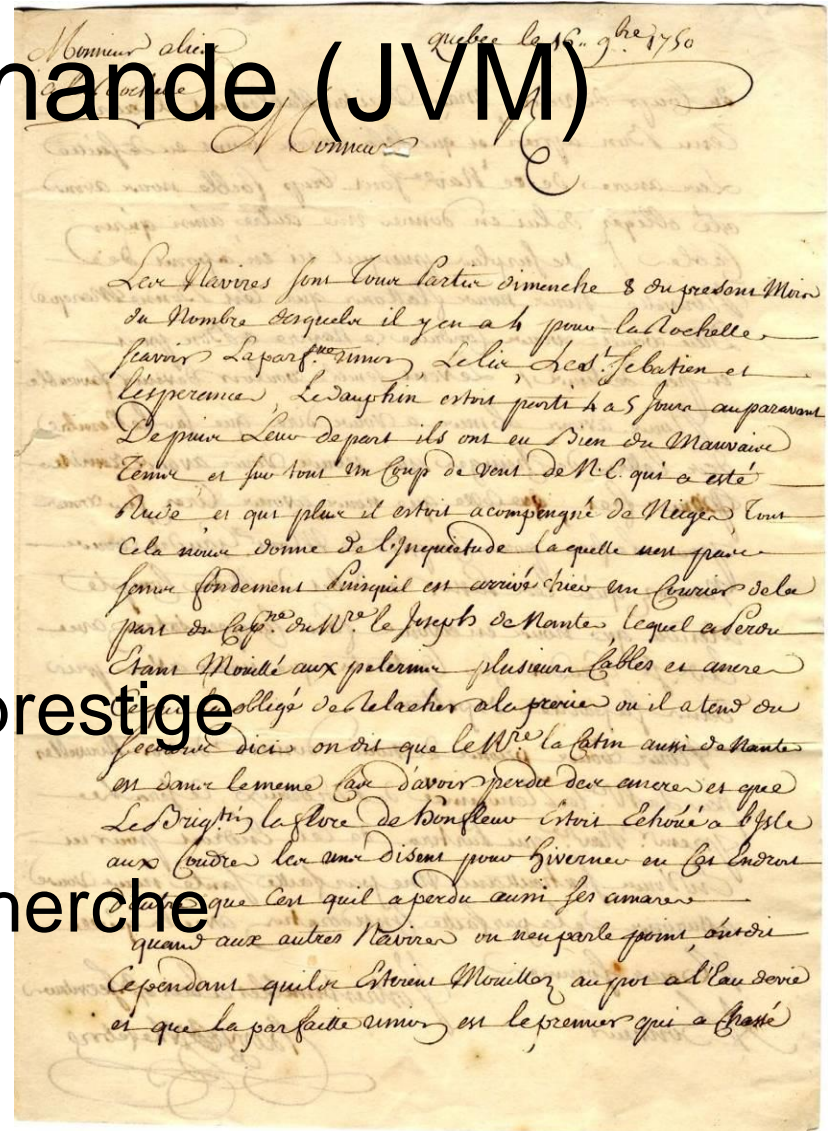 Monsieur aliés
quebec le 16.. 9bre 1750
hande (JVM)
a la Rochelle
Monsieur
Les Navires sont tous Partis dimenche 8 du present Mois
du Nombre desquels il y en a 4 pour la Rochelle
scavoir La parfte union, Le lis, Le st Sebatien et
l'esperence, Le dauphin estoit parti 4 a 5 Jours auparavant
Depuis Leur depart ils ont eu Bien du Mauvais
Tems et sur tout un Coup de vent de N.E. qui a esté
Rude et qui plus il estoit acompengné de Neiges Tout
Cela nous donne de l'Inquietude laquelle nest pas
sans fondement Puisquil est arrivé hier un Courier de la
part du Capne du Nre le Joseph de Nantes lequel a Perdu
Etant Mouillé aux pelerins plusieurs Cables et ancres
prestige
Ce qui la obligé de Relacher a la prerie ou il atend du
secours dici on dit que le Nre la Catin aussi de Nantes
est dans le meme Cas d'avoir perdu des ancres et que
Le Brigtin la flore de honfleur Estoit Echoüé a l'Isle
aux Coudres les uns disent pour hiverner en Cet Endroit
herche
d'autre que Cest quil a perdu aussi ses amares
quand aux autres Navires on nen parle point, on dit
Cependant quils Estoient Mouillez au pot a l'Eau de vie
et que la parfaitte union est le premier qui a Chassé